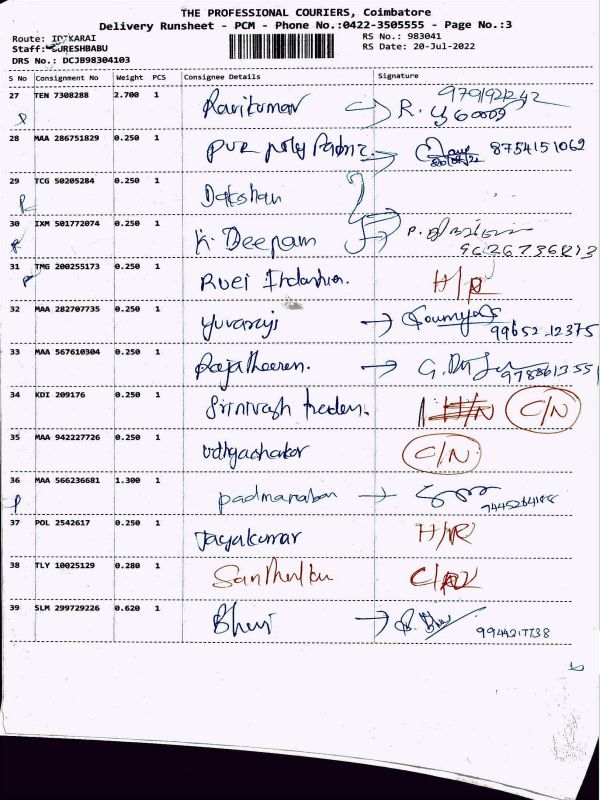 THE PROFESSIONAL COURIERS, Coimbatore
Delivery Runsheet - PCM - Phone No.:0422-3505555 - Page No.:3
Route: IDIKARAI
RS No.: 983041
Staff: SURESHBABU
RS Date: 20-Jul-2022
DRS No.: DCJB98304103
S No Consignment No Weight PCS Consignee Details Signature
27 TEN 7308288 2.700 1 Ravikumar R.
28 MAA 286751829 0.250 1 pvr poly 8754151069
29 TCG 50205284 0.250 1 Dakshan
30 IXM 501772074 0.250 1 K. Deepam P.
31 TMG 200255173 0.250 1 H/R
32 MAA 282707735 0.250 1 yuvaraj Soumya
99652 12375
33 MAA 567610304 0.250 1 G.
34 KDI 209176 0.250 1 Srinivash traders. C/N
35 MAA 942227726 0.250 1 udhyachakar C/N
36 MAA 566236681 1.300 1 padmanaban
37 POL 2542617 0.250 1 Jayakumar H/R
38 TLY 10025129 0.280 1
39 SLM 299729226 0.620 1